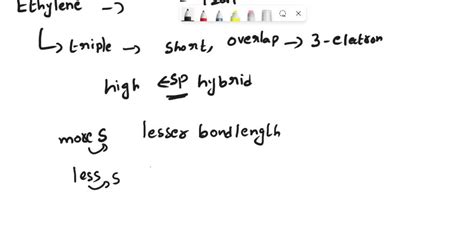 Ethylene →
↳ triple → short, overlap → 3-eletron
high ← sp hybrid
more s lesser bondlength
less s